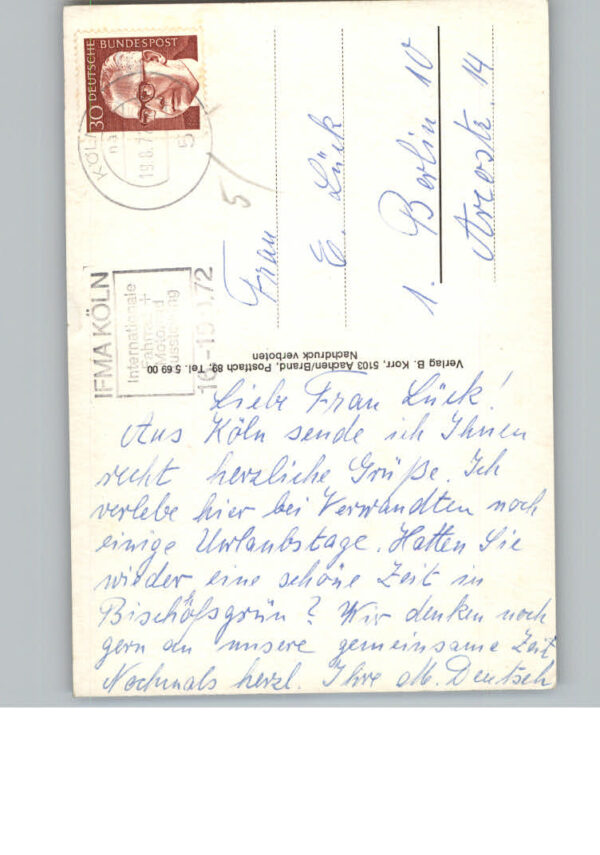 30
DEUTSCHE
BUNDESPOST
KÖLN
19.8.72
5
IFMA KÖLN
Internationale
Fahrrad- +
Motorrad
Ausstellung
.72
5/
Frau
E. Lück
1. Berlin 10
Arcostr. 14
Verlag B. Korr, 5103 Aachen/Brand, Postfach 89, Tel. 5 69 00
Nachdruck verboten
Liebe Frau Lück!
Aus Köln sende ich Ihnen
recht herzliche Grüße. Ich
verlebe hier bei Verwandten noch
einige Urlaubstage. Hatten Sie
wieder eine schöne Zeit in
Bischofsgrün? Wir denken noch
gern an unsere gemeinsame Zeit
Nochmals herzl. Ihre M. Deutsch